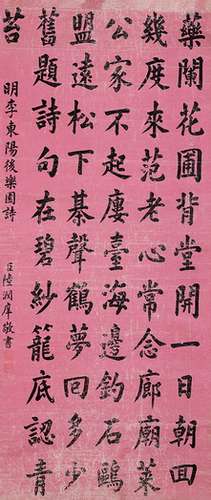 藥闌花圃背堂開一日朝回
幾度來范老心常念廊廟萊
公家不起廔臺海邊釣石鷗
盟遠松下棊聲鶴夢回多少
舊題詩句在碧紗籠底認青
苔
明李東陽後樂園詩
臣陸潤庠敬書